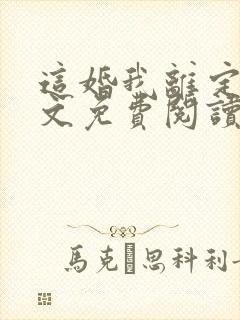 這婚我離定
文免費閱讀
馬克 思科利